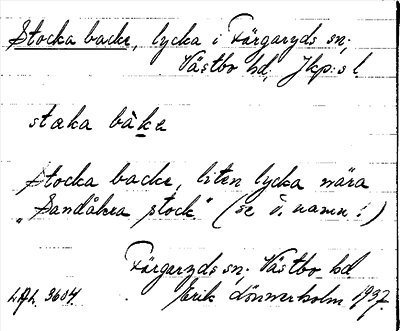 Stocka backe, lycka i Färgaryds sn;
Västbo hd; Jkp:s l
staka bàke
Stocka backe, liten lycka nära
"Sandåkra stock." (se d. namn!)
Färgaryds sn; Västbo hd.
Erik Lönnerholm 1937.